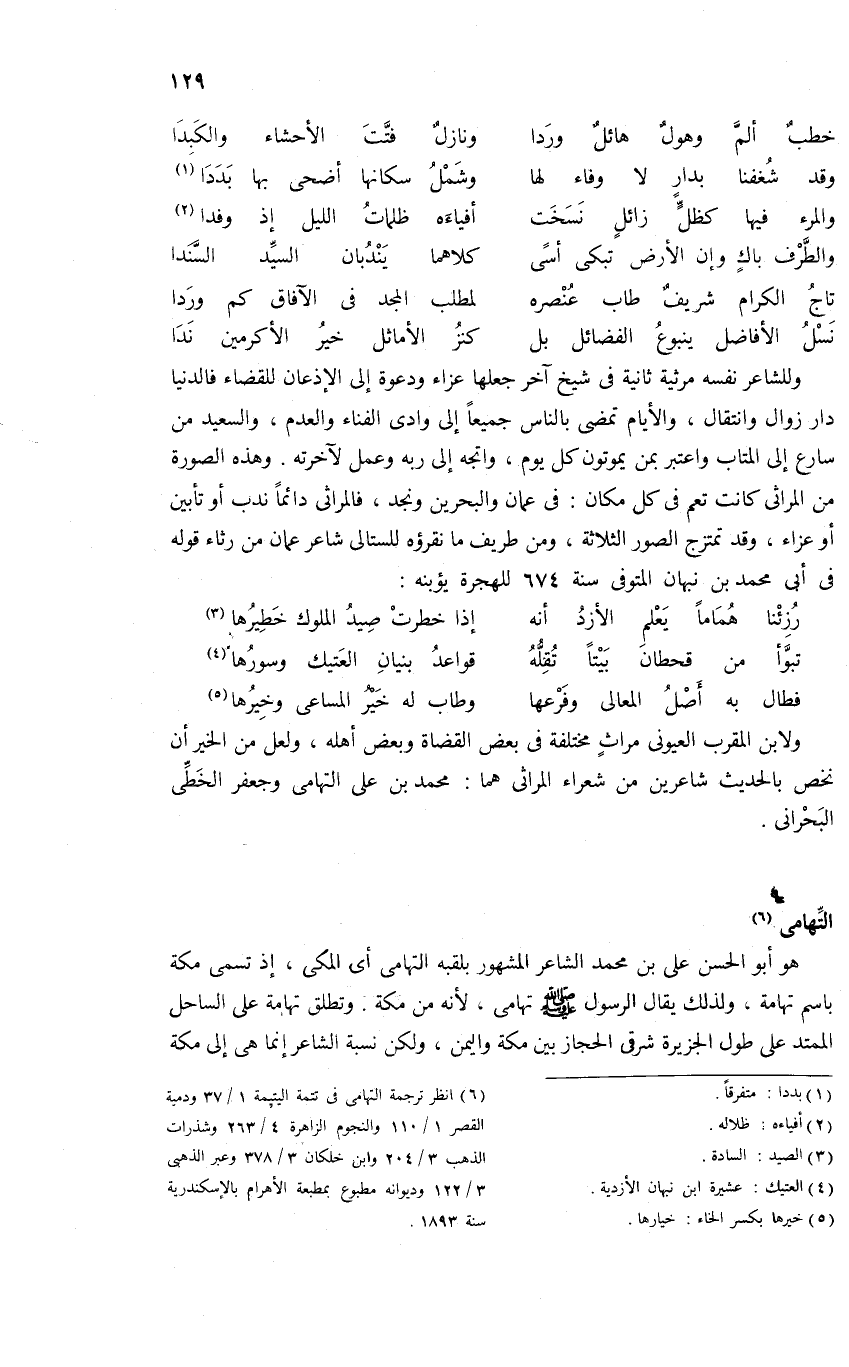 ١٢٩
خطبٌ ألمَّ وهولٌ هائلٌ ورَدا ونازلٌ فتَّتَ الأحشاء والكَبِدَا
وقد شُغفنا بدارٍ لا وفاء لها وشَمْلُ سكانها أضحى بها بَدَدَا (١)
والمرء فيها كظلٍّ زائلٍ نَسَخَت أفياءَه ظلماتُ الليل إذ وفدا (٢)
والطَّرْف باكٍ وإن الأرض تبكى أسًى كلاهما يَنْدُبان السيِّد السَّندا
تاجُ الكرام شريفٌ طاب عُنْصره لمطلب المجد فى الآفاق كم ورَدا
نَسْلُ الأفاضل ينبوعُ الفضائل بل كنزُ الأماثل خيرُ الأكرمين نَدَا
وللشاعر نفسه مرثية ثانية فى شيخ آخر جعلها عزاء ودعوة إلى الإذعان للقضاء فالدنيا
دار زوال وانتقال ، والأيام تمضى بالناس جميعاً إلى وادى الفناء والعدم ، والسعيد من
سارع إلى المتاب واعتبر بمن يموتون كل يوم ، واتجه إلى ربه وعمل لآخرته . وهذه الصورة
من المراثى كانت تعم فى كل مكان : فى عمان والبحرين ونجد ، فالمراثى دائماً ندب أو تأبين
أو عزاء ، وقد تمتزج الصور الثلاثة ، ومن طريف ما نقرؤه للستالى شاعر عمان من رثاء قوله
فى أبى محمد بن نبهان المتوفى سنة ٦٧٤ للهجرة يؤبنه :
رُزِئْنا هُمَاماً يَعْلم الأزدُ أنه إذا خطرتْ صِيدُ الملوك خَطِيرُها (٣)
تبوَّأ من قحطانَ بَيْتاً تُقِلُّهُ قواعدُ بنيانِ العَتيك وسورُها (٤)
فطال به أَصْلُ المعالى وفَرْعها وطاب له خَيْرُ المساعى وخِيرُها (٥)
ولابن المقرب العيونى مراثٍ مختلفة فى بعض القضاة وبعض أهله ، ولعل من الخير أن
نخص بالحديث شاعرين من شعراء المراثى هما : محمد بن على التهامى وجعفر الخَطِّى
البَحْرانى .
التِّهامى (٦)
هو أبو الحسن على بن محمد الشاعر المشهور بلقبه التهامى أى المكى ، إذ تسمى مكة
باسم تهامة ، ولذلك يقال الرسول ﷺ تهامى ، لأنه من مكة . وتطلق تهامة على الساحل
الممتد على طول الجزيرة شرقى الحجاز بين مكة واليمن ، ولكن نسبة الشاعر إنما هى إلى مكة
(١) بددا : متفرقاً .
(٢) أفياءه : ظلاله .
(٣) الصيد : السادة .
(٤) العتيك : عشيرة ابن نبهان الأزدية .
(٥) خيرها بكسر الخاء : خيارها .
(٦) انظر ترجمة التهامى فى تتمة اليتيمة ١ / ٣٧ ودمية
القصر ١ / ١١٠ والنجوم الزاهرة ٤ / ٢٦٣ وشذرات
الذهب ٣ / ٢٠٤ وابن خلكان ٣ / ٣٧٨ وعبر الذهبى
٣ / ١٢٢ وديوانه مطبوع بمطبعة الأهرام بالإسكندرية
سنة ١٨٩٣ .